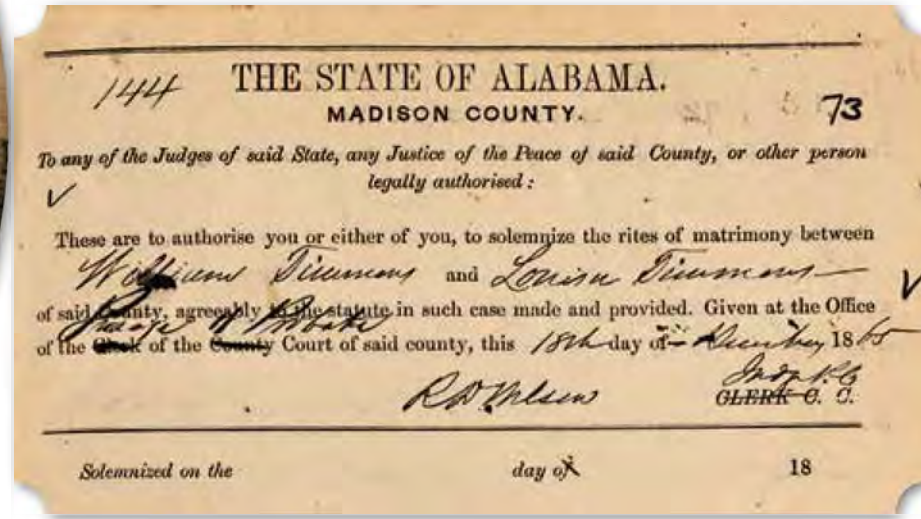 144 THE STATE OF ALABAMA. 73
MADISON COUNTY.
To any of the Judges of said State, any Justice of the Peace of said County, or other person
legally authorised:
These are to authorise you or either of you, to solemnize the rites of matrimony between
William Timmons and Louisa Timmons
of said County, agreeably to the statute in such case made and provided. Given at the Office
Judge of Probate
of the Clerk of the County Court of said county, this 18th day of December 1865
Judge P. C.
CLERK C. C.
Solemnized on the day of 18